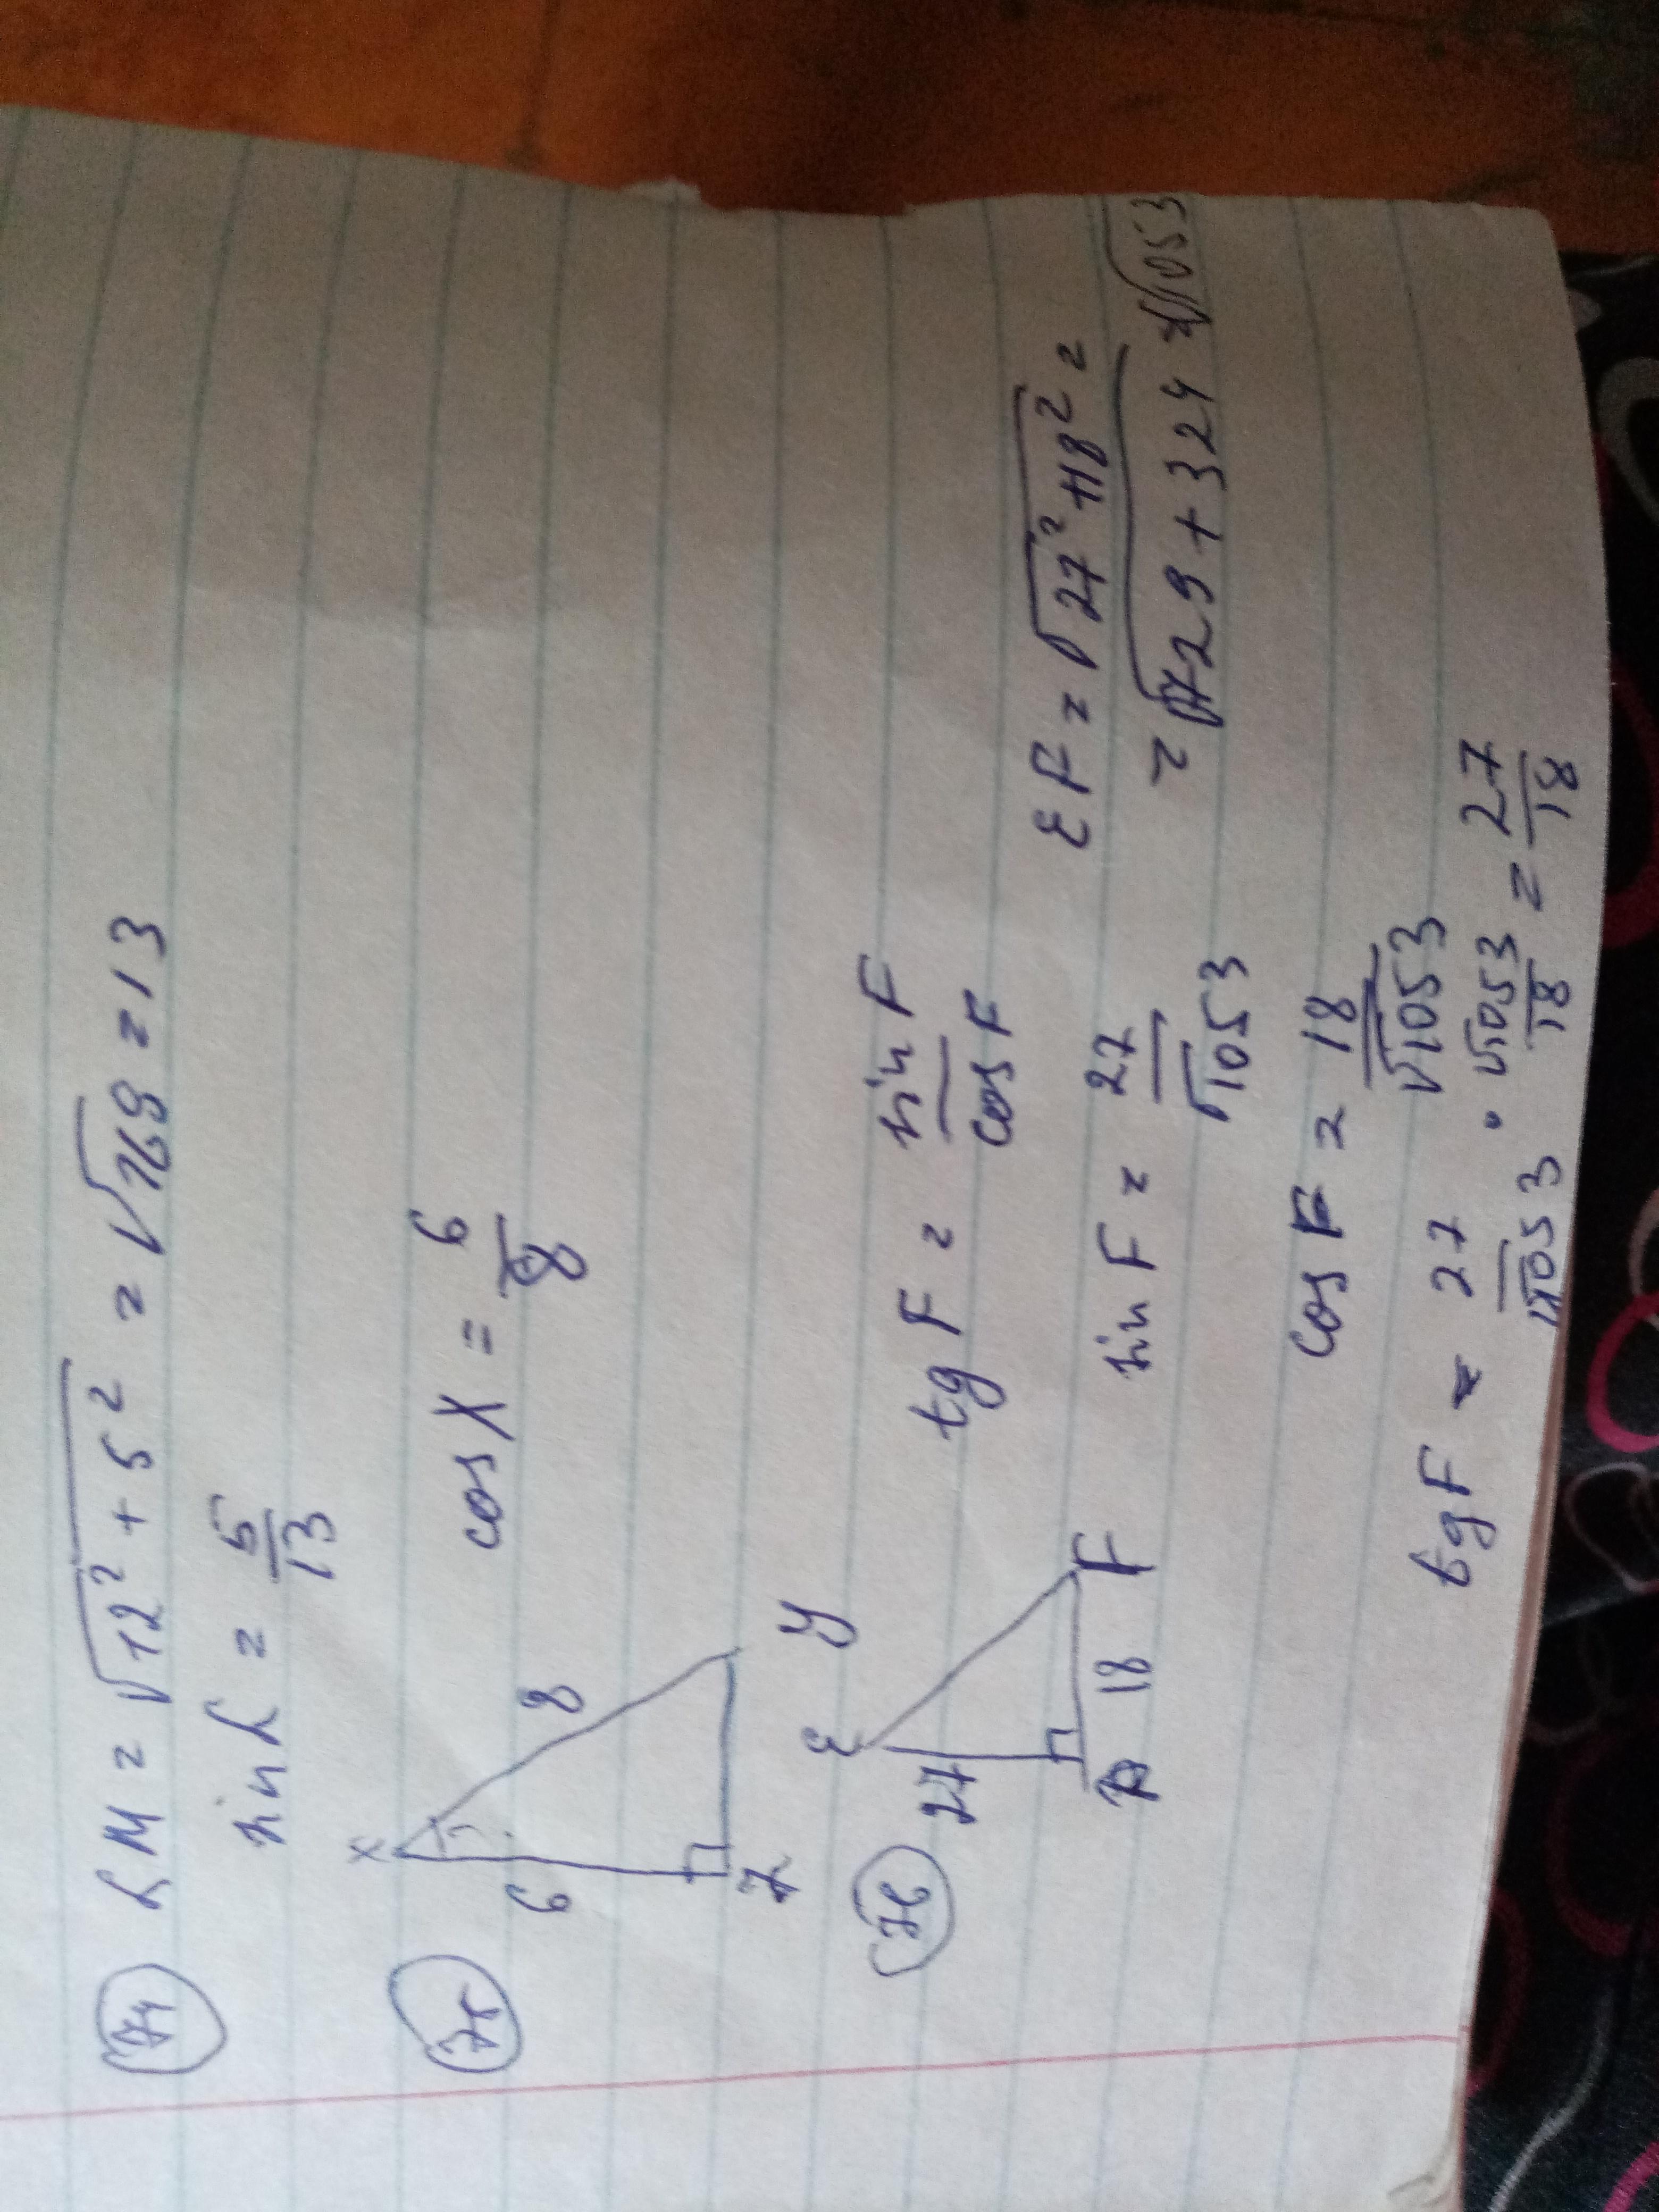 74 LM = √12² + 5² = √169 = 13
sin L = 5/13
75 X 6 8 Z Y
cos X = 6/8
76 E 27 D 18 F
tg F = sin F / cos F
EF = √27² + 18² =
= √729 + 324 = √1053
sin F = 27/√1053
cos F = 18/√1053
tg F = 27/√1053 · √1053/18 = 27/18